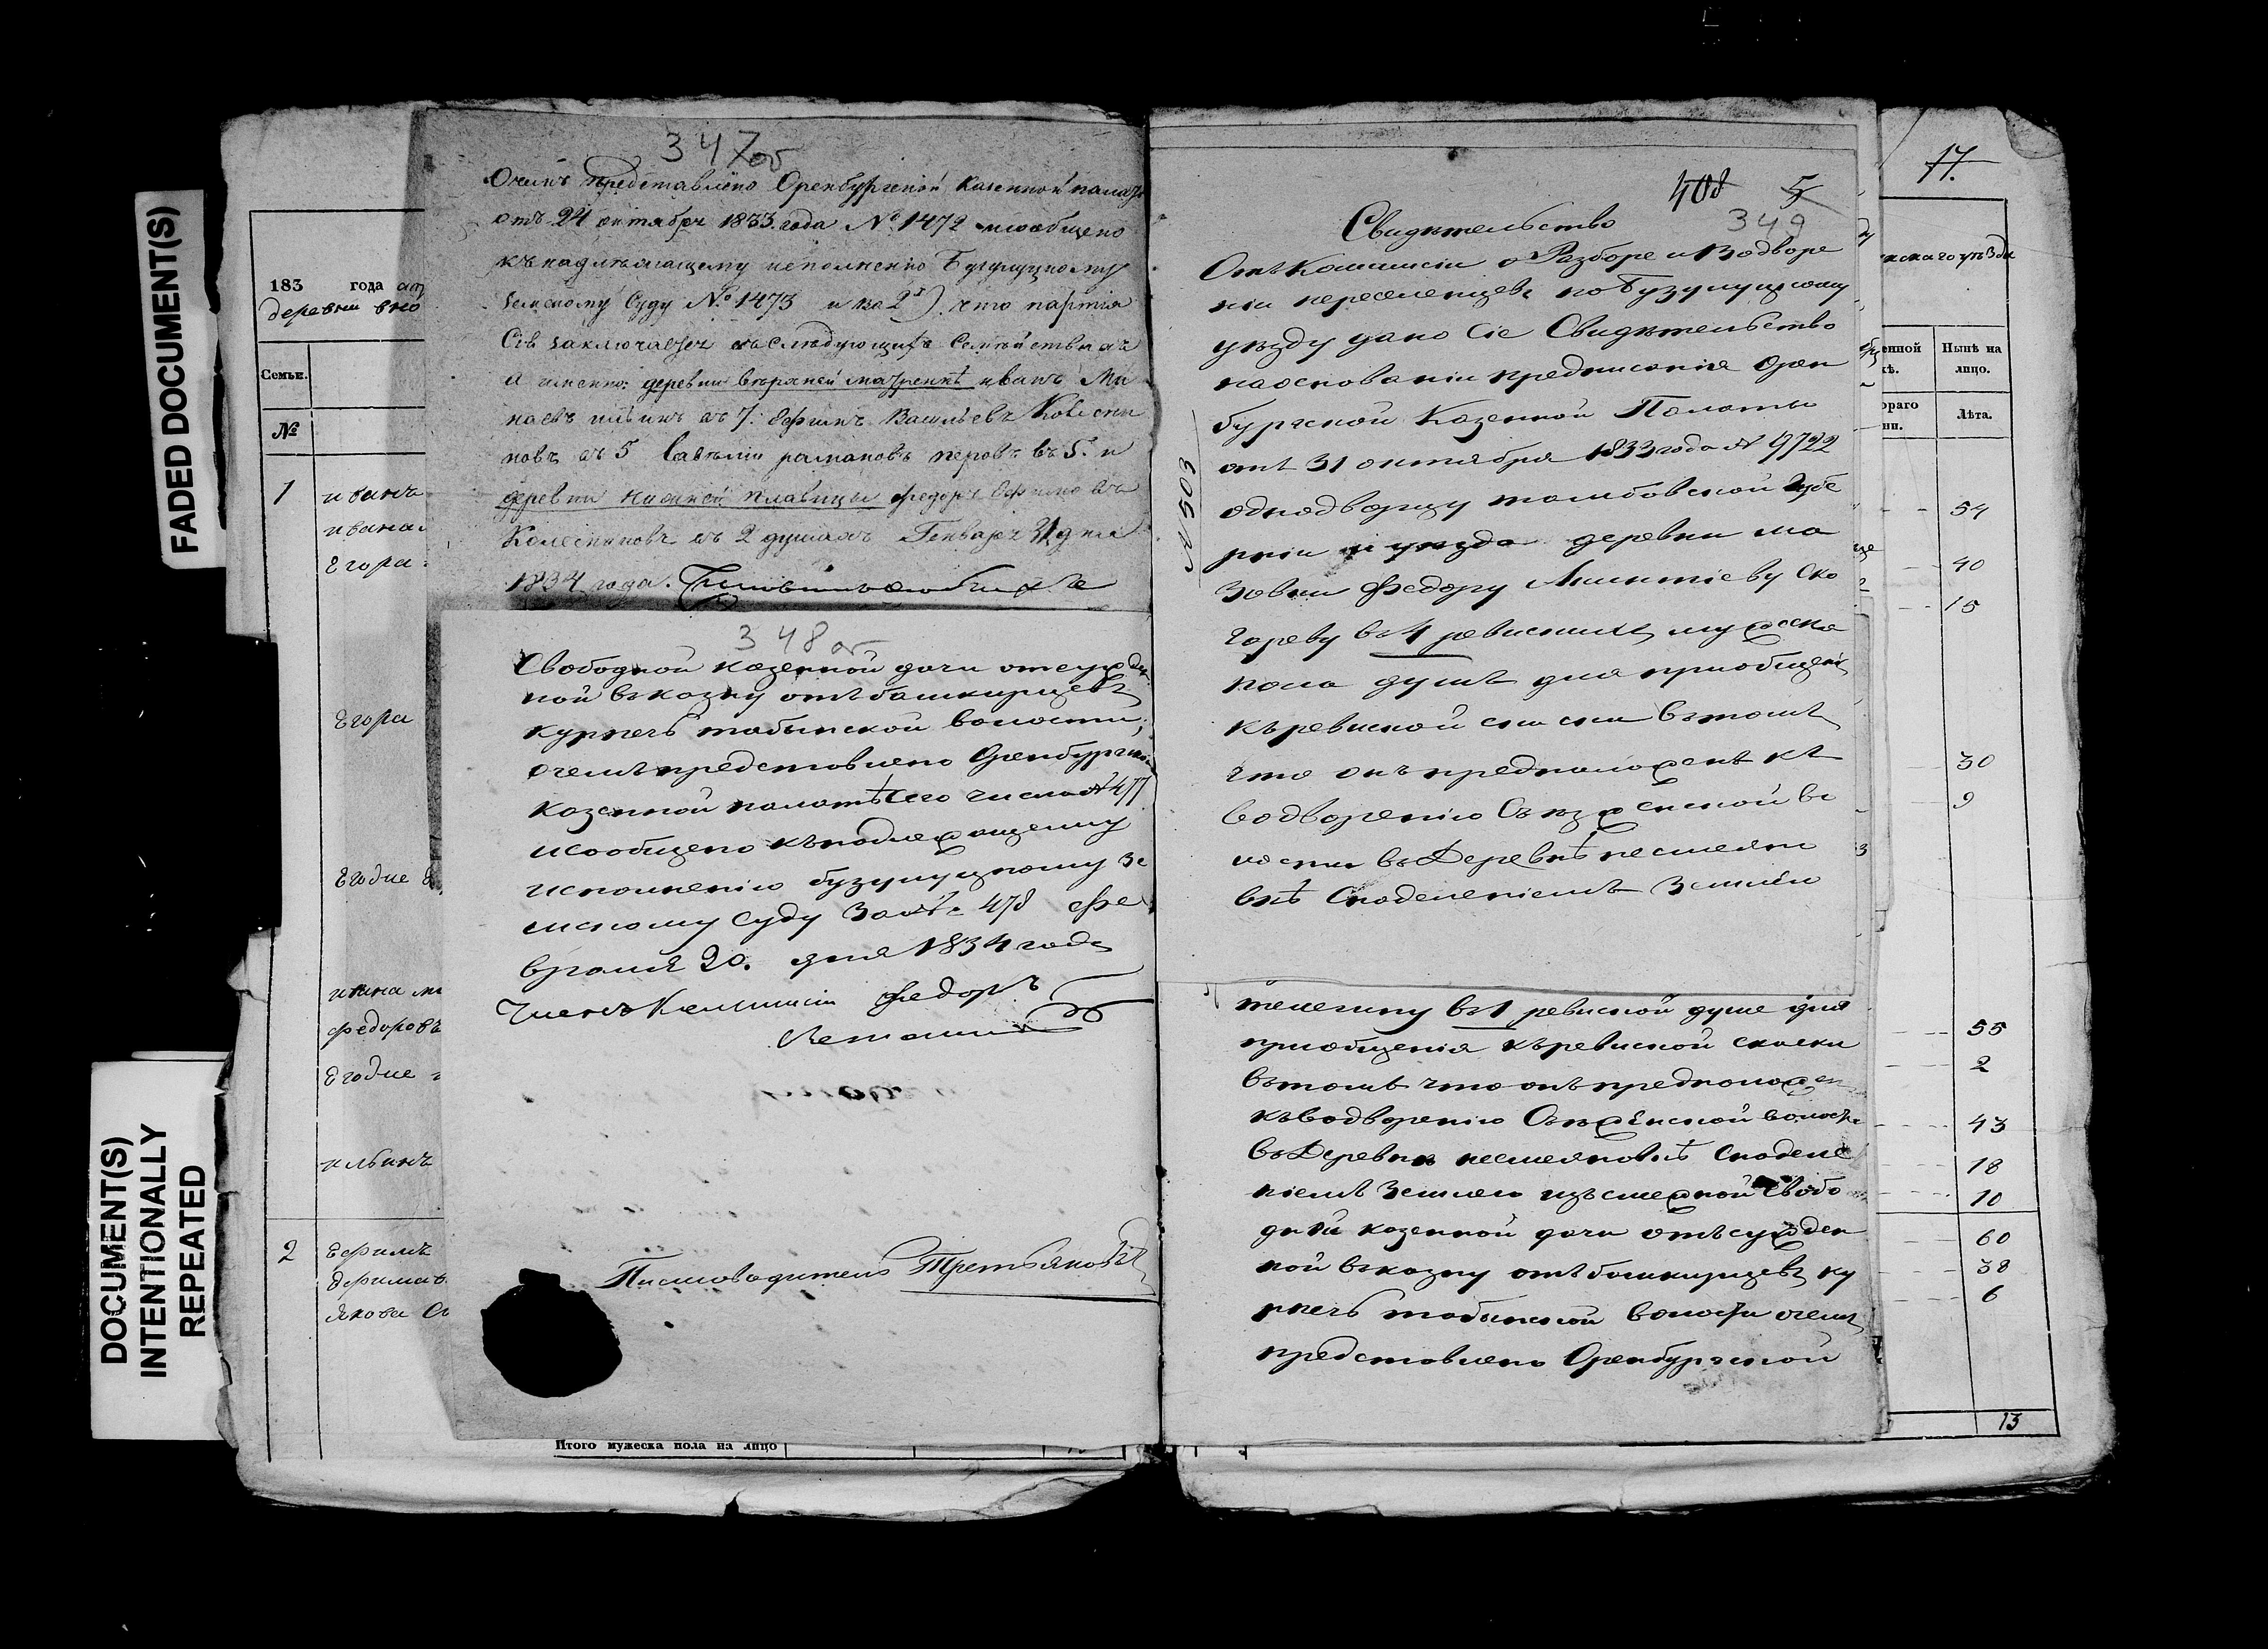 FADED DOCUMENT(S)
DOCUMENT(S)
INTENTIONALLY
REPEATED
183 года
деревни вно
Семьи.
№
1 иванъ
ивана
Егора
Егора
Егодне
ивана
федоровъ
Егодне
ильинъ
2 Ефимъ
Ефима
якова
347об
Очемъ представлено Оренбургской казенной палатѣ
отъ 24 октября 1833. года № 1472 исообщено
къ надлѣжащему исполнению Бузулуцкому
земскому Суду № 1473 и во 2х) что партiя
Сiя заключается въ слѣдующихъ Семѣйствахъ
а именно: деревни верхней матренкѣ иванъ Ми
наевъ ильинъ въ 7. Ефимъ Васильевъ Колесни
ковъ въ 5 Савѣлiй рамановъ перовъ въ 5. и
деревни нижней плавицы федоръ Ефимовъ
Колесниковъ въ 2 душахъ Генваря 31 дня
1834 года.
348об
Свободной казенной дачи отсужден
ной въ казну отъ башкирцевъ
курпечь табынской волости;
очемъ представлено Оренбургской
казенной палатѣ сего числа № 477
исообщено къ надлежащему
исполненiю бузулуцкому зе
мскому суду за № 478 Фе
враля 20. дня 1834 года
Членъ Коммисiи Федоръ
Письмоводитель Третьяковъ
408 5
349
Свидѣтельство
Отъ Коммисiи о Разборе и Водворе
нiи переселенцевъ по Бузулуцкому
уѣзду дано сiе Свидѣтельство
на основанiи предписанiя Орен
бургской Казенной Палаты
отъ 31 октября 1833 года № 9722
однодворцу тамбовской губе
рнiи и уѣзда деревни ма
зовки Федору Ско
гореву въ 4 ревискихъ мужеска
пола душъ для прiобщенiя
къ ревиской скаски въ томъ
что онъ предположенъ къ
водворенiю Съезженской во
лости въ Деревнѣ несмеяно
вкѣ Снаделенiемъ Землею
№ 503
телегину въ 1 ревиской душе для
прiобщенiя къ ревиской скаски
въ томъ что онъ предположен
къ водворенiю Съезженской волости
въ Деревню несмеяновкѣ Снаделе
нiемъ Землею изъ смежной свобо
дной казенной дачи отъсужден
ной въ казну отъ башкирцевъ ку
рпечь табынской волости очемъ
представлено Оренбургской
Итого мужеска пола на лицо
17.
уѣзда
Нынѣ на
лицо.
Лѣта.
54
40
15
30
9
55
2
43
18
10
60
38
6
13